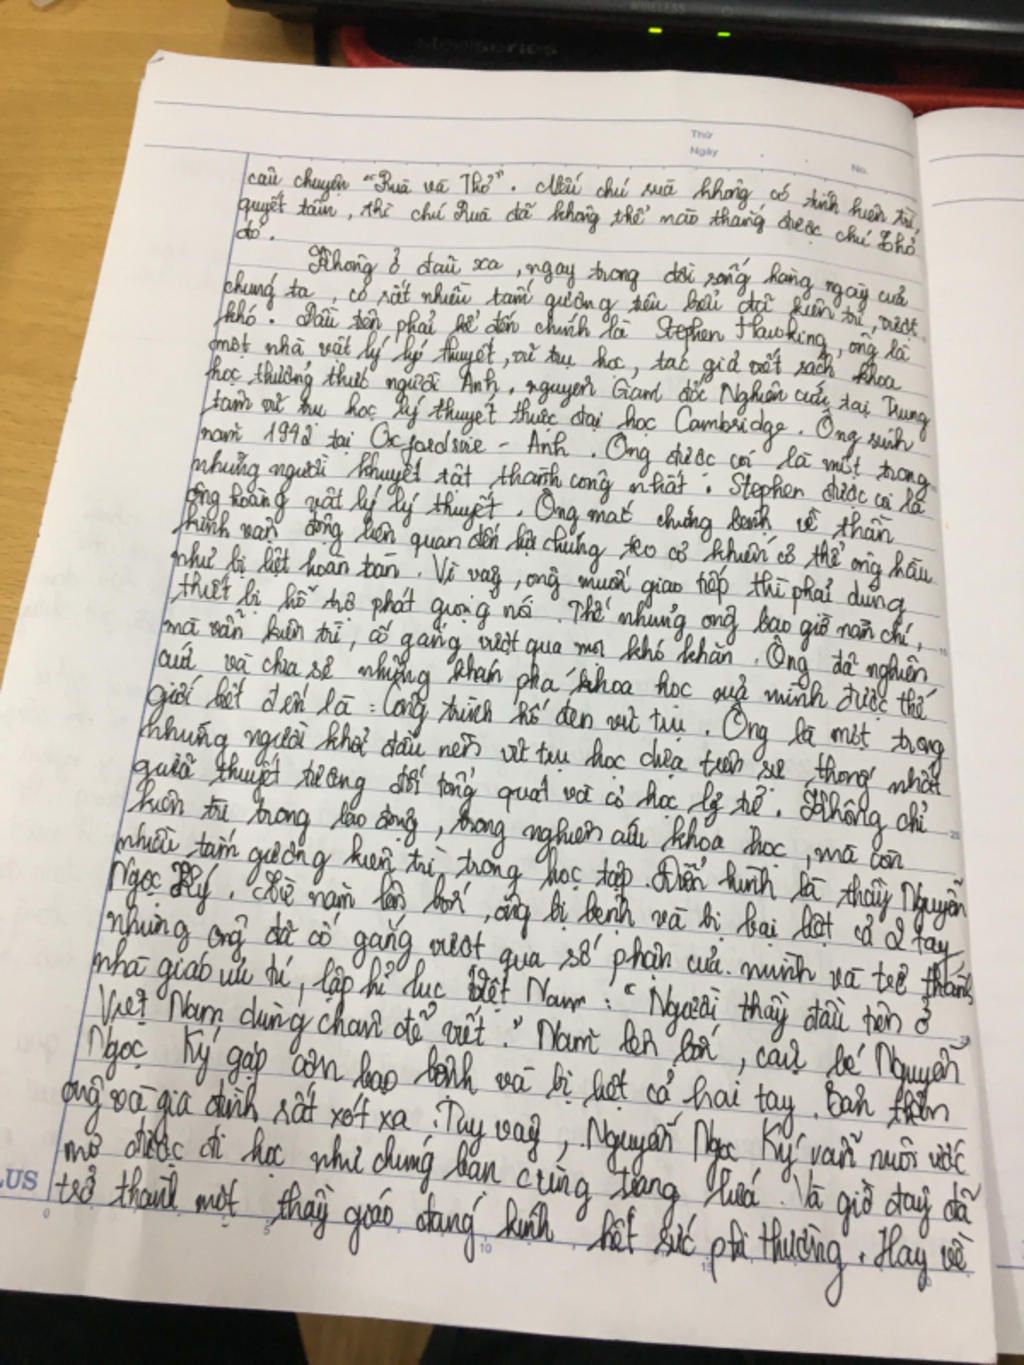 WIRELESS
steelseries
Thứ
Ngày
No.
câu chuyện "Rùa và Thỏ". Nếu chú rùa không có tính kiên trì,
quyết tâm, thì chú Rùa đã không thể nào thắng được chú Thỏ
đó.
Không ở đâu xa, ngay trong đời sống hàng ngày của
chúng ta, có rất nhiều tấm gương tiêu biểu đại kiên trì, vượt
khó. Đầu tiên phải kể đến chính là Stephen Hawking, ông là
một nhà vật lý lý thuyết, vũ trụ học, tác giả viết sách khoa
học thường thức người Anh, nguyên Giám đốc Nghiên cứu tại Trung
tâm vũ trụ học lý thuyết thuộc đại học Cambridge. Ông sinh
năm 1942 tại Oxfordsire - Anh. Ông được coi là một trong
những người khuyết tật thành công nhất. Stephen được coi là
ông hoàng vật lý lý thuyết. Ông mắc chứng bệnh về thần
kinh vận động liên quan đến hội chứng teo cơ khiến cơ thể ông hầu
như bị liệt hoàn toàn. Vì vậy, ông muốn giao tiếp thì phải dùng
thiết bị hỗ trợ phát giọng nói. Thế nhưng ông bao giờ nản chí,
mà vẫn kiên trì, cố gắng vượt qua mọi khó khăn. Ông đã nghiên
cứu và chia sẻ những khám phá khoa học của mình được thế
giới biết đến là: Công trình hố đen vũ trụ. Ông là một trong
những người khởi đầu nền vũ trụ học dựa trên sự thống nhất
giữa thuyết tương đối tổng quát và cơ học lý tử. Không chỉ
kiên trì trong lao động, trong nghiên cứu khoa học, mà còn
nhiều tấm gương kiên trì trong học tập. Điển hình là thầy Nguyễn
Ngọc Ký. Từ năm lên bốn, ông bị bệnh và bị bại liệt cả 2 tay
nhưng ông đã cố gắng vượt qua số phận của mình và trở thành
nhà giáo ưu tú, lập kỉ lục Việt Nam: "Người thầy đầu tiên ở
Việt Nam dùng chân để viết." Năm lên bốn, cậu bé Nguyễn
Ngọc Ký gặp cơn bạo bệnh và bị liệt cả hai tay. Bản thân
ông và gia đình rất xót xa. Tuy vậy, Nguyễn Ngọc Ký vẫn nuôi ước
mơ được đi học như chúng bạn cùng trang lứa. Và giờ đây đã
trở thành một thầy giáo đáng kính hết sức phi thường. Hay về
LUS
0 5 10 15